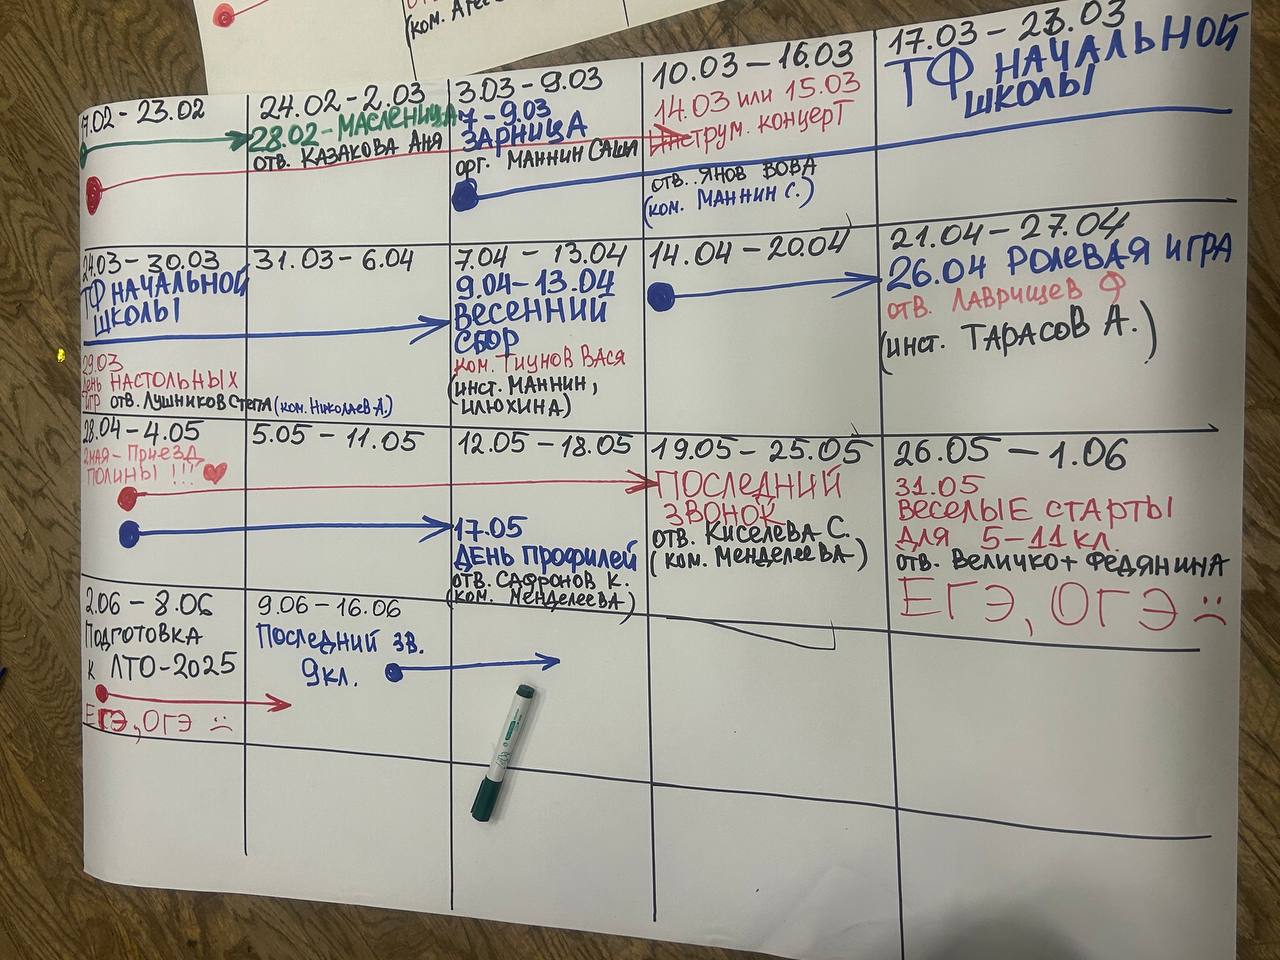 (ком. Агее
17.02 - 23.02
24.02 - 2.03
28.02 - МАСЛЕНИЦА
отв. КАЗАКОВА АНЯ
3.03 - 9.03
7 - 9.03
ЗАРНИЦА
орг. МАННИН САША
10.03 - 16.03
14.03 или 15.03
Инструм. концерт
отв. ЯНОВ ВОВА
(ком. МАННИН С.)
17.03 - 23.03
ТФ НАЧАЛЬНОЙ
ШКОЛЫ
24.03 - 30.03
ТФ НАЧАЛЬНОЙ
ШКОЛЫ
29.03
День НАСТОЛЬНЫХ
игр отв. ЛУШНИКОВ СТЕПА (ком. НИКОЛАЕВ А.)
31.03 - 6.04
7.04 - 13.04
9.04 - 13.04
ВЕСЕННИЙ
СБОР
ком. Тиунов Вася
(инст. МАННИН,
ИЛЮХИНА)
14.04 - 20.04
21.04 - 27.04
26.04 РОЛЕВАЯ ИГРА
отв. ЛАВРИЩЕВ Ф
(инст. ТАРАСОВ А.)
28.04 - 4.05
2 МАЯ - Приезд
ПОЛИНЫ !!! ♥
5.05 - 11.05
12.05 - 18.05
17.05
ДЕНЬ ПРОФИЛЕЙ
отв. САФРОНОВ К.
(ком. МЕНДЕЛЕЕВА)
19.05 - 25.05
ПОСЛЕДНИЙ
ЗВОНОК
отв. КИСЕЛЕВА С.
(ком. МЕНДЕЛЕЕВА)
26.05 - 1.06
31.05
ВЕСЕЛЫЕ СТАРТЫ
ДЛЯ 5-11 КЛ.
отв. ВЕЛИЧКО + ФЕДЯНИНА
ЕГЭ, ОГЭ :(
2.06 - 8.06
Подготовка
к ЛТО-2025
ЕГЭ, ОГЭ :(
9.06 - 16.06
Последний зв.
9кл.